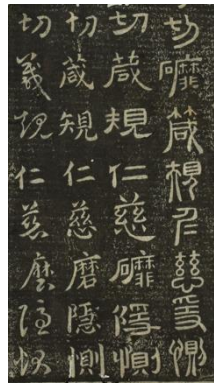 切䃺箴規仁慈㥯惻
切葴規仁慈䃺隱惻
切葴規仁慈磨隱惻
切箴規仁慈磨隱惻